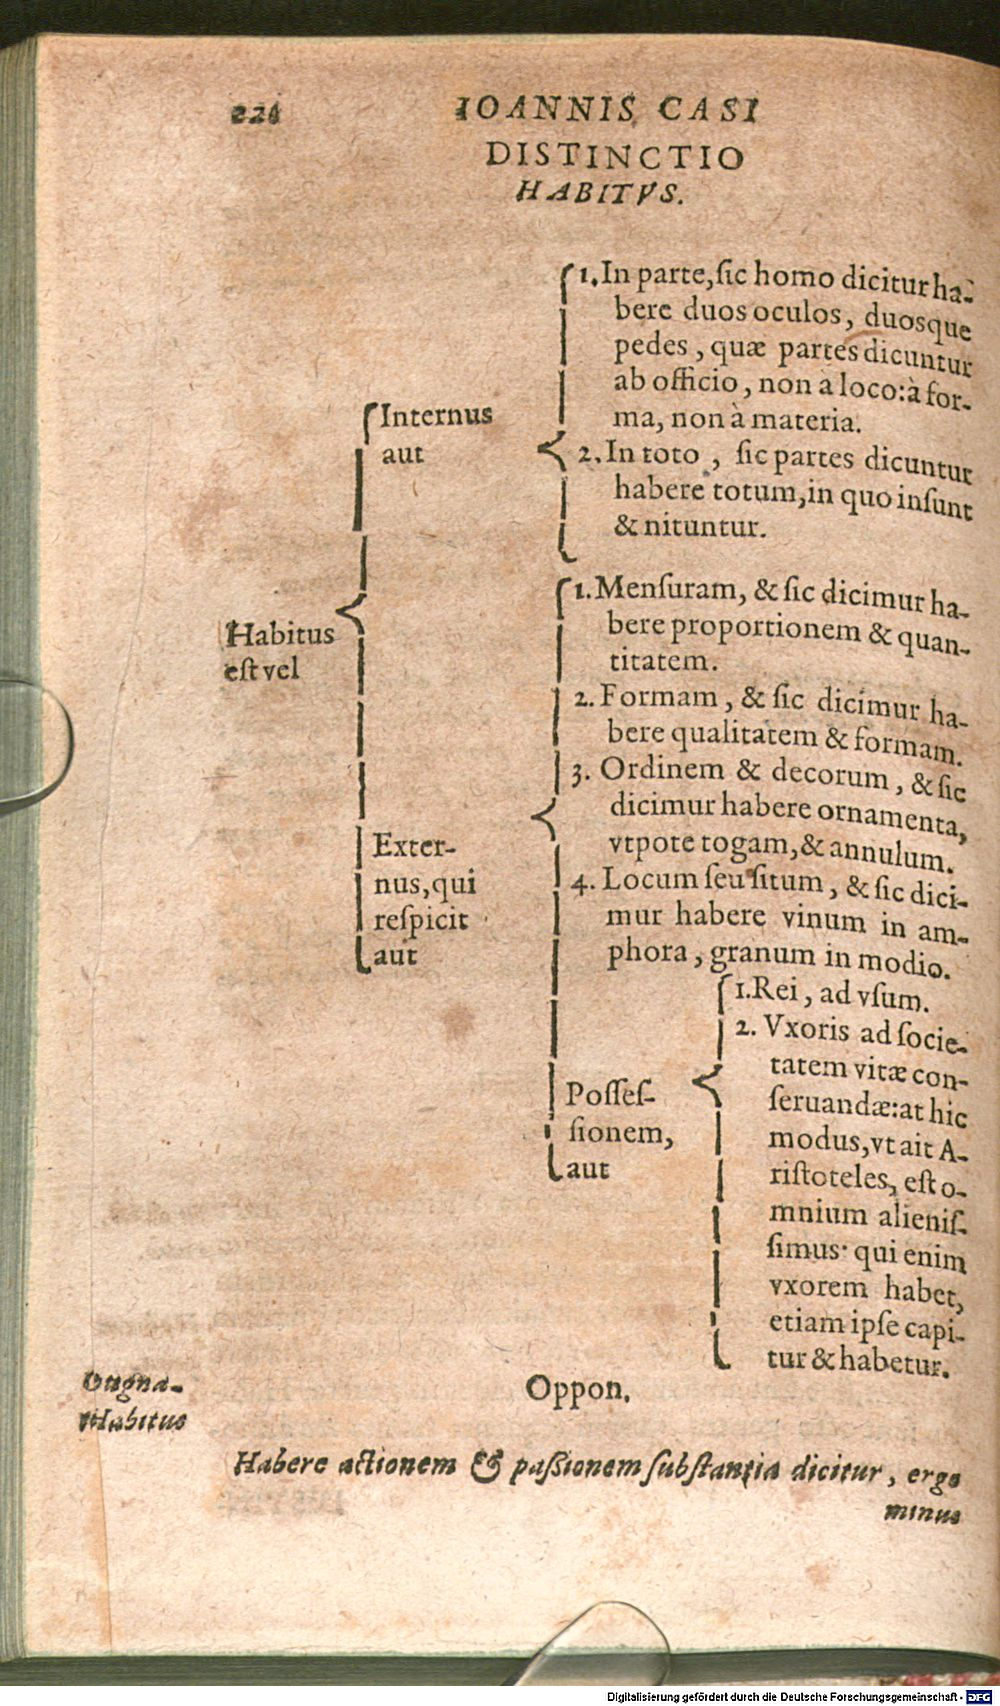 IOANNIS CASI
DISTINCTIO
HABITVS.
Habitus
est vel
Internus
aut
1. In parte, ſic homo dicitur ha-
bere duos oculos, duosque
pedes, quæ partes dicuntur
ab officio, non a loco: à for-
ma, non à materia.
2. In toto, ſic partes dicuntur
habere totum, in quo inſunt
& nituntur.
Exter-
nus, qui
reſpicit
aut
1. Menſuram, & ſic dicimur ha-
bere proportionem & quan-
titatem.
2. Formam, & ſic dicimur ha-
bere qualitatem & formam.
3. Ordinem & decorum, & ſic
dicimur habere ornamenta,
vtpote togam, & annulum.
4. Locum ſeu ſitum, & ſic dici-
mur habere vinum in am-
phora, granum in modio.
Poſſeſ-
ſionem,
aut
1. Rei, ad vſum.
2. Vxoris ad ſocie-
tatem vitæ con-
ſeruandæ: at hic
modus, vt ait A-
riſtoteles, eſt o-
mnium alieniſ-
ſimus: qui enim
vxorem habet,
etiam ipſe capi-
tur & habetur.
Oppon.
Habitus
Habere actionem & paſſionem ſubſtantia dicitur, ergo
minus
Digitalisierung gefördert durch die Deutsche Forschungsgemeinschaft - DFG